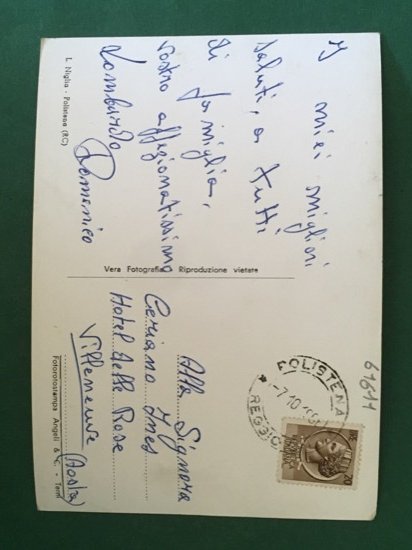 I miei migliori
saluti, a tutti
di famiglia,
vostro affezionatissimo
Lombardo Domenico
L. Niglia - Polistena (RC)
Vera Fotografia Riproduzione vietata
Alla Signora
Ceriano Ines
Hotel delle Rose
Villeneuve (Aosta)
Fotorotostampa Angeli & C. - Terni
POLISTENA
-7.10
REGGIO
20